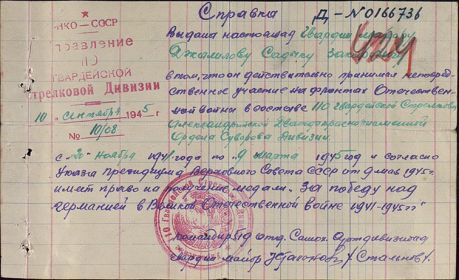 НКО–СССР
УПРАВЛЕНИЕ
110
ГВАРДЕЙСКОЙ
Стрелковой Дивизии
10 сентября 1945 г
№ 10/08
Справка
Д-№0166736
Выдана настоящая Гвардии
Джамилову Садыку
в том, что он действительно принимал непосред-
ственное участие на фронтах Отечествен-
ной войны в составе 110 Гвардейской Стрелковой
Александрийской Дважды Краснознаменной
Ордена Суворова Дивизии
ноября 1941 года по 9 марта 1945 год и согласно
Указа Президиума Верховного Совета СССР от 9 мая 1945 г.
имеет право на получение медали „За победу над
Германией в Великой Отечественной войне 1941-1945 гг"
Командир отд. Самох. Артдивизиона
гвардии майор